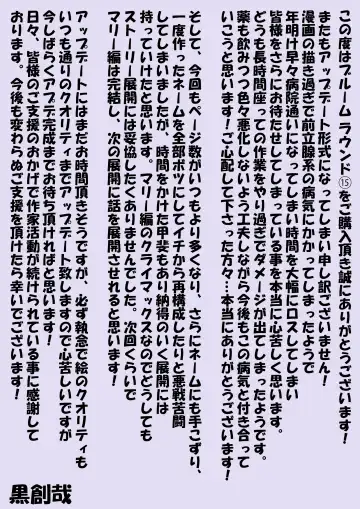 この度はブルーム ラウンド⑮をご購入頂き誠にありがとうございます!
またもアップデート形式になってしまい申し訳ございません!
漫画の描き過ぎで前立腺系の病気にかかってしまったようで
年明け早々病院通いになってしまい時間を大幅にロスしてしまい
皆様をさらにお待たせしてしまっている事を本当に心苦しく思います。
どうも長時間座っての作業をやり過ぎでダメージが出てしまったようです。
薬も飲みつつ色々悪化しないよう工夫しながら今後もこの病気と付き合って
いこうと思います!ご心配して下さった方々…本当にありがとうございます!
そして、今回もページ数がいつもより多くなり、さらにネームにも手こずり、
一度作ったネームを全部ボツにしてイチから再構成したりと悪戦苦闘
してしまいましたが、時間をかけた甲斐もあり納得のいく展開には
持っていけたと思います。マリー編のクライマックスなのでどうしても
ストーリー展開には妥協したくありませんでした。次回くらいで
マリー編は完結し、次の展開に話を展開させれると思います!
アップデートにはまだお時間頂きそうですが、必ず執念で絵のクオリティも
いつも通りのクオリティまでアップデート致しますので心苦しいですが
今しばらくアプデ完成までお待ち頂ければと思います!
日々、皆様のご支援のおかげで作家活動が続けられている事に感謝して
おります。今後も変わらぬご支援を頂けたら幸いでございます!
黒創哉